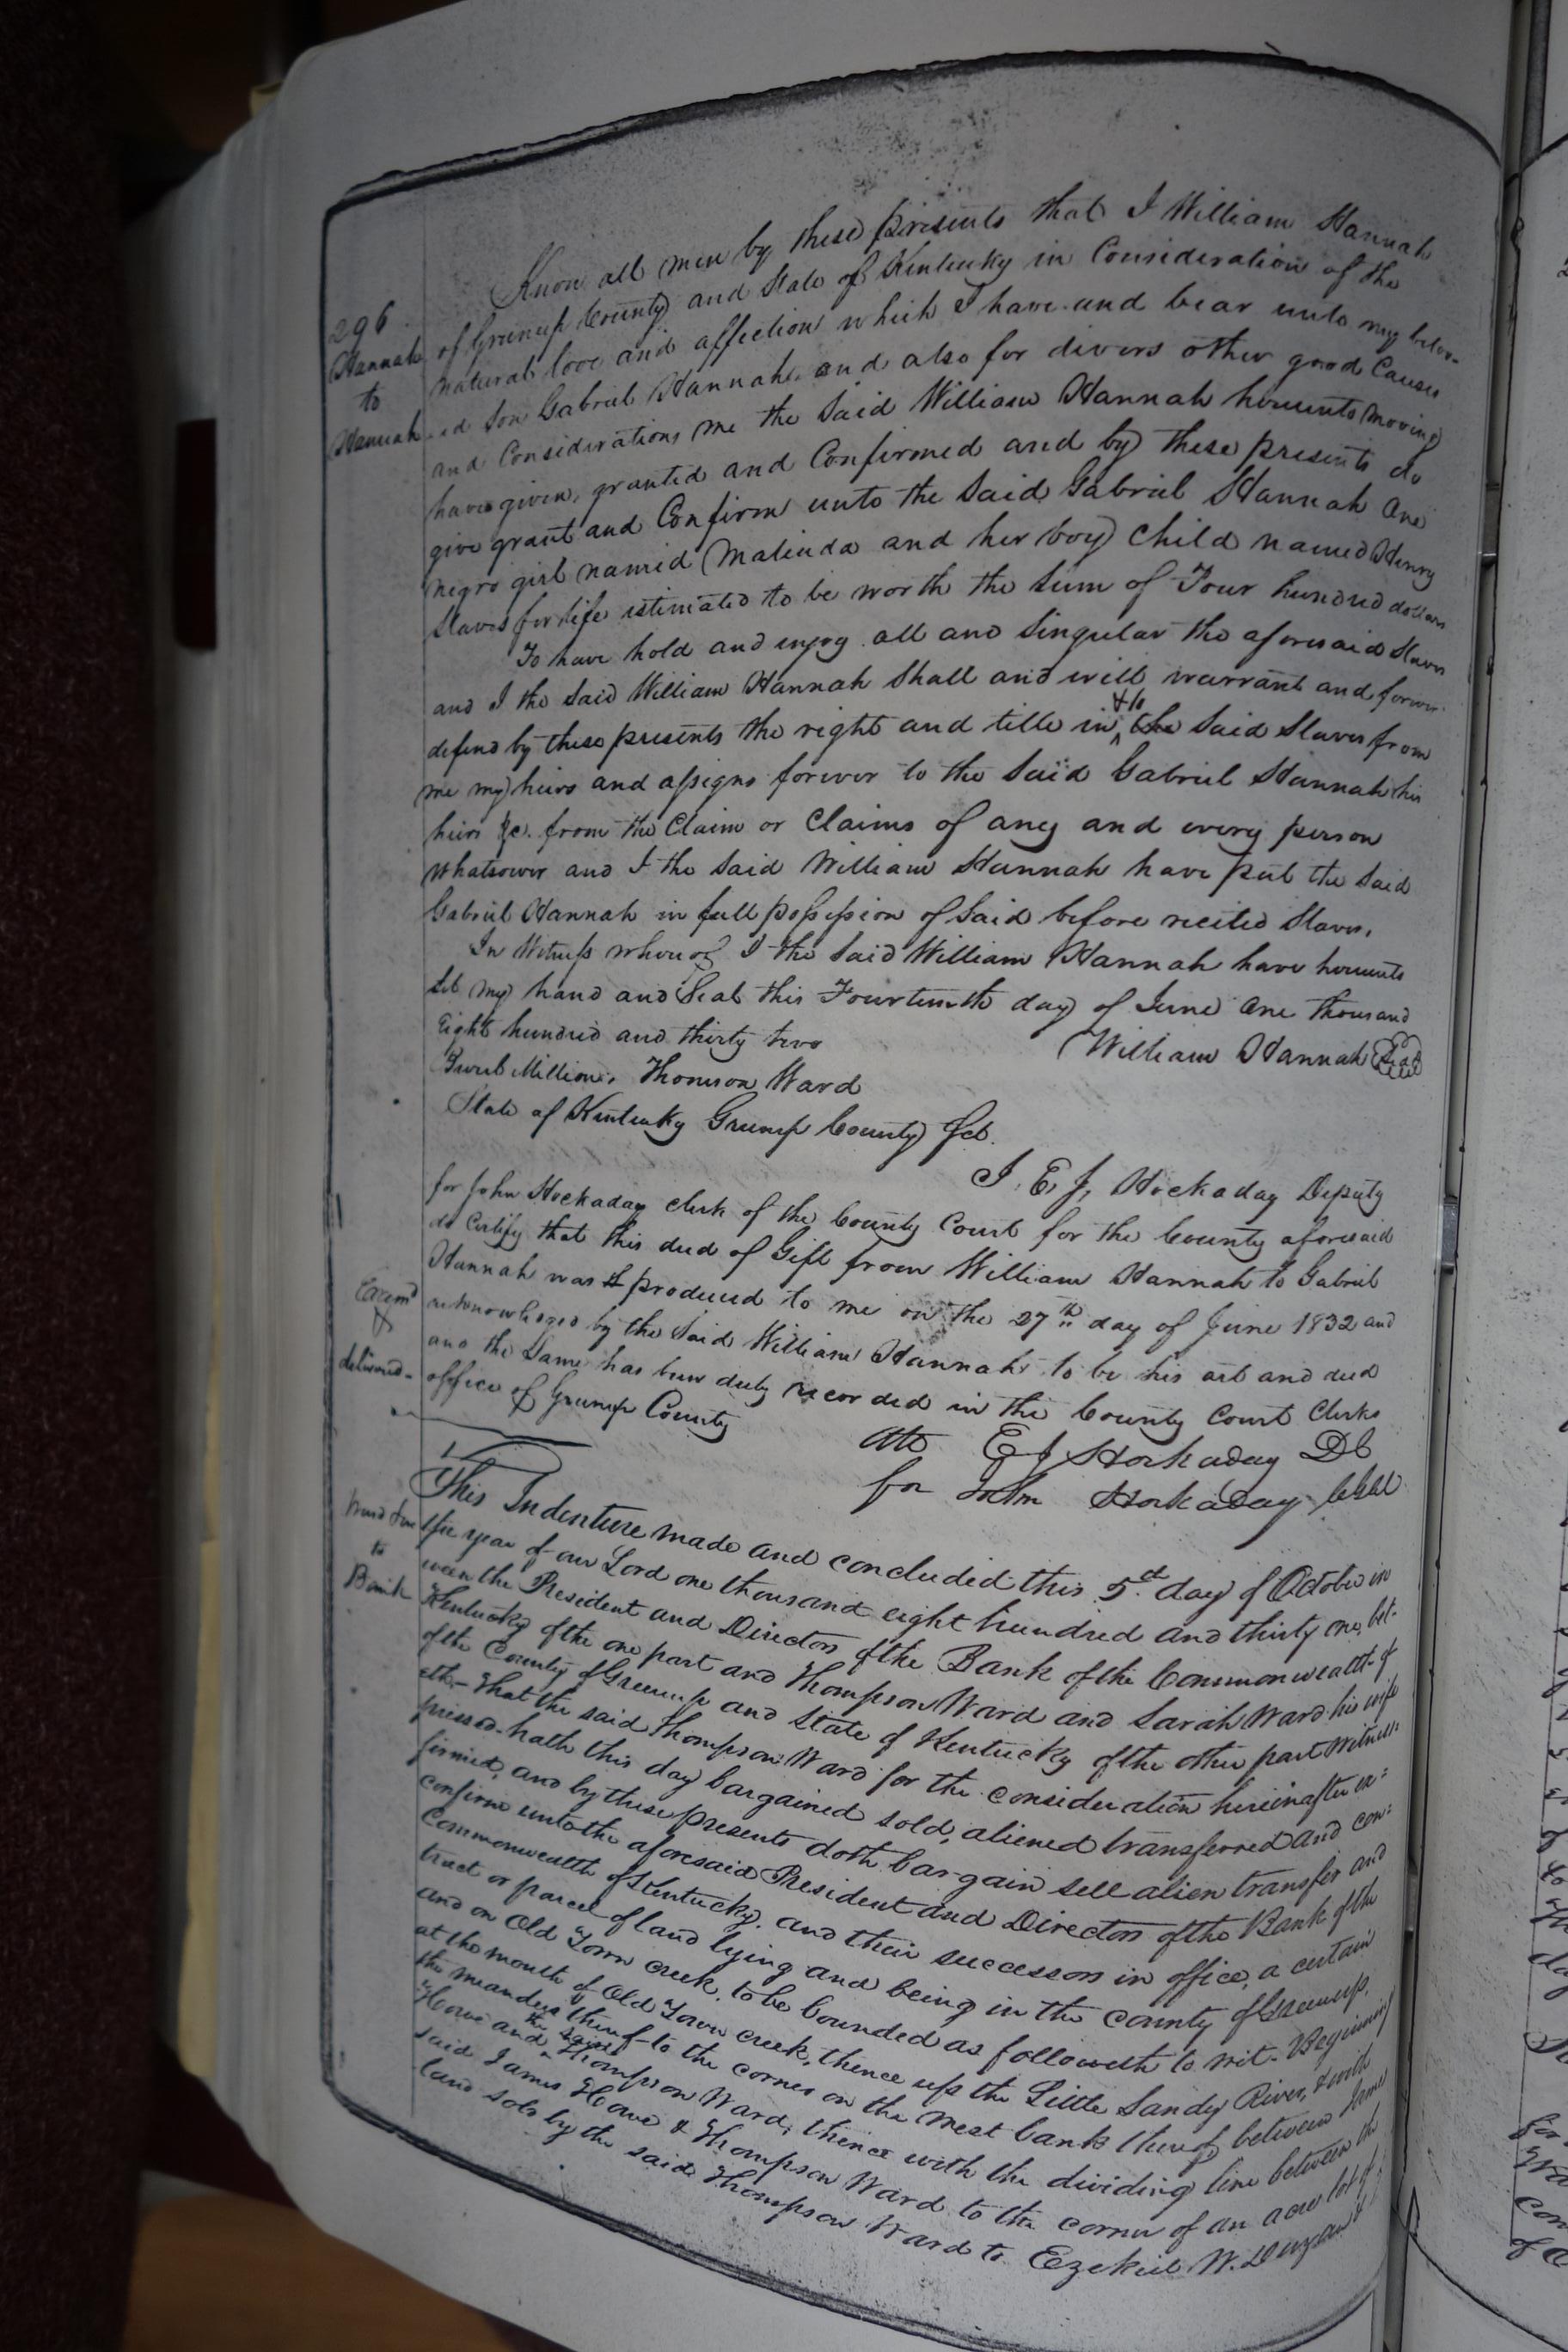 296
Hannah
to
Hannah
Know all men by these presents that I William Hannah
of Greenup County and State of Kentucky in Consideration of the
natural love and affection which I have and bear unto my belov-
ed Son Gabriel Hannah, and also for divers other good Causes
and Considerations me the Said William Hannah hereunto moving
have given, granted and Confirmed and by these presents do
give grant and Confirm unto the Said Gabriel Hannah One
negro girl named Malinda and her boy Child named Henry
Slaves for life estimated to be worth the Sum of Four hundred dollars
To have hold and enjoy all and Singular the aforesaid Slaves
and I the Said William Hannah Shall and will warrant and forever
defend by these presents the right and title in & to the Said Slaves from
me my heirs and assigns forever to the Said Gabriel Hannah his
heirs &c. from the Claim or Claims of any and every person
Whatsoever and I the Said William Hannah have put the Said
Gabriel Hannah in full possession of Said before recited Slaves.
In Witness whereof I the Said William Hannah have hereunto
Set my hand and Seal this Fourteenth day of June One thousand
Eight hundred and thirty two
William Hannah Seal
Million, Thomson Ward
State of Kentucky Greenup County Sct.
I, E, J, Hockaday Deputy
for John Hockaday Clerk of the County Court for the County aforesaid
do Certify that this deed of Gift from William Hannah to Gabriel
Hannah was produced to me on the 27th day of June 1832 and
acknowledged by the Said William Hannah to be his act and deed
and the Same has been duly recorded in the County Court Clerks
office of Greenup County
Exam'd
&
delivered-
Att E J Hockaday DC
for John Hockaday Clk
Ward
to
Bank
This Indenture made and concluded this 5th day of October in
the year of our Lord one thousand eight hundred and thirty one, bet-
ween the President and Directors of the Bank of the Commonwealth of
Kentucky of the one part and Thompson Ward and Sarah Ward his wife
of the County of Greenup and State of Kentucky of the other part Witness
eth- That the said Thompson Ward for the consideration hereinafter ex=
pressed- hath this day bargained sold, aliened transferred and con=
firmed, and by these presents doth bargain sell alien transfer and
confirm unto the aforesaid President and Directors of the Bank of the
Commonwealth of Kentucky, and their successors in office, a certain
tract or parcel of land lying and being in the County of Greenup,
and on Old Town creek, to be bounded as followeth to wit- Beginning
at the mouth of Old Town creek, thence up the Little Sandy River, & with
the meanders thereof to the corner on the west bank thereof between James
Howe and the said Thompson Ward, thence with the dividing line between the
said James Howe & Thompson Ward to the corner of an acre lot of
land sold by the said Thompson Ward to Ezekiel W.